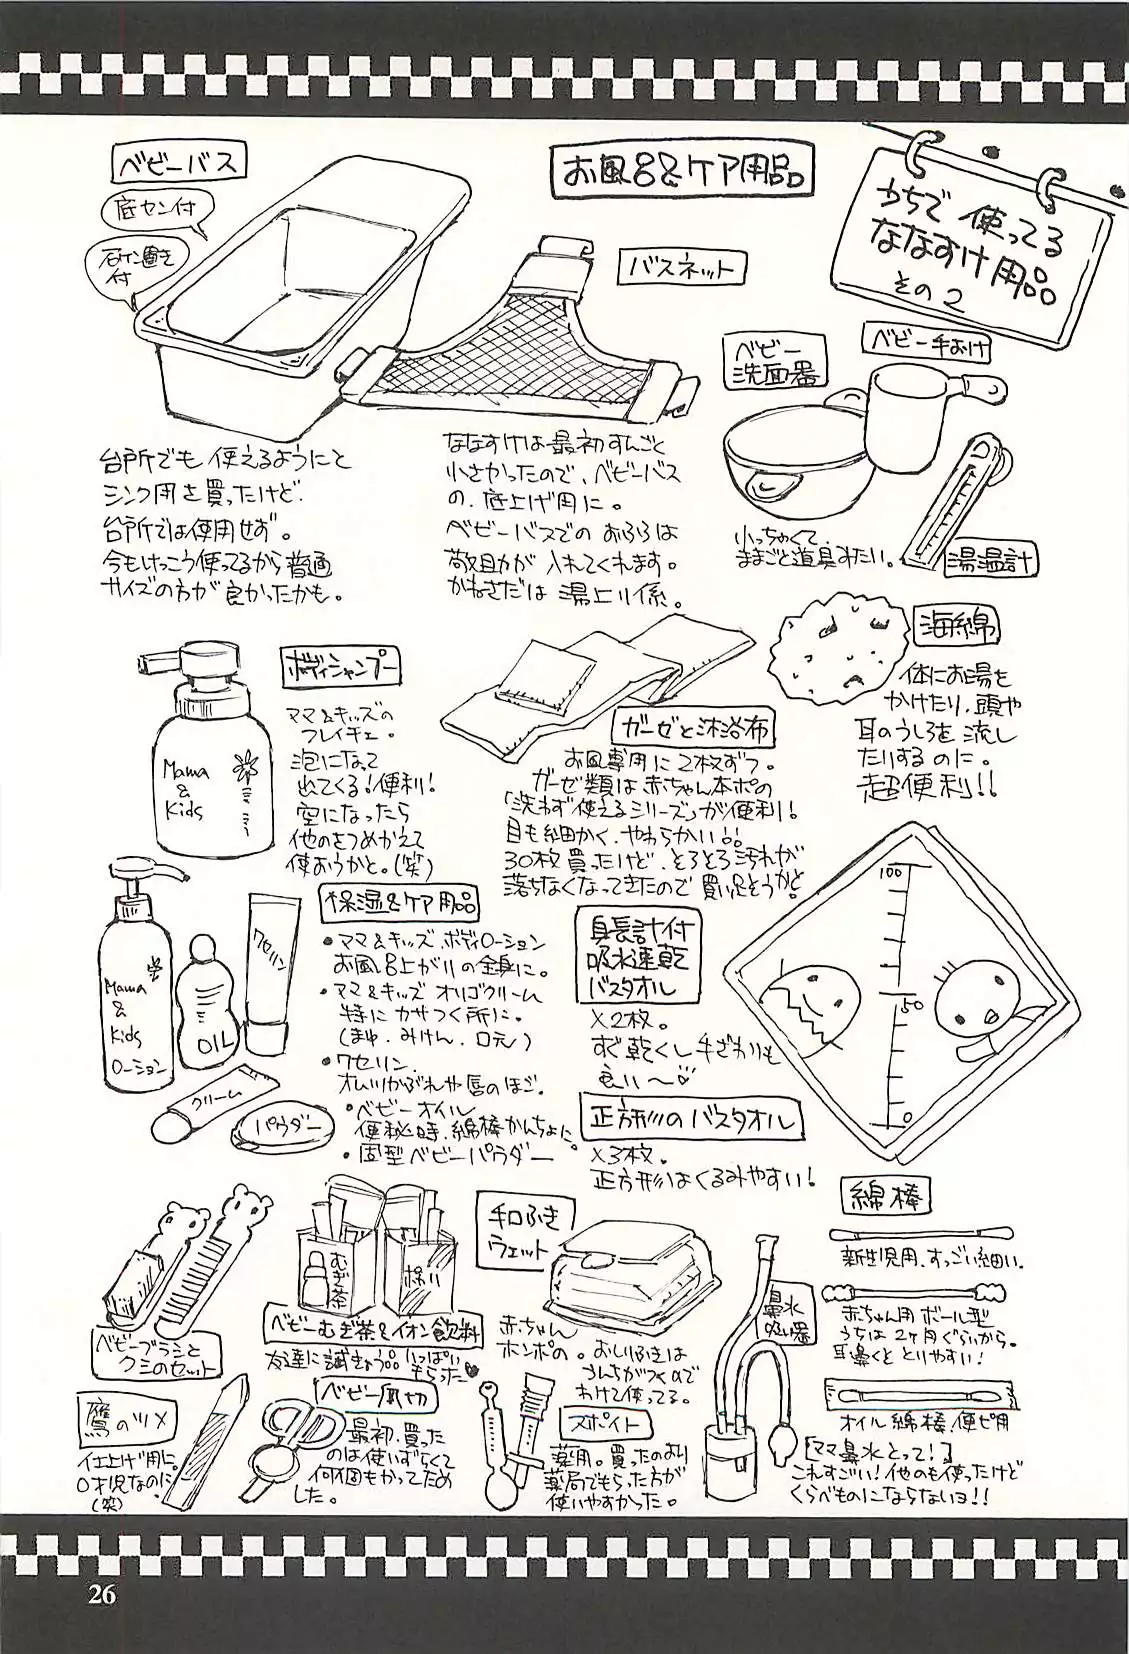 うちで使ってる
ななすけ用品
その2
お風呂&ケア用品
ベビーバス
底セン付
石ケン置き
付
台所でも使えるようにと
シンク用を買ったけど、
台所では使用せず。
今もけっこう使ってるから普通
サイズの方が良かったかも。
バスネット
ななすけは最初すんごく
小さかったので、ベビーバス
の、底上げ用に。
ベビーバスでのおふろは
敬助が入れてくれます。
かねさだは湯上り係。
ベビー
洗面器
ベビー手おけ
小っちゃくて、
ままごと道具みたい。
湯温計
海綿
体にお湯を
かけたり、頭や
耳のうしろを流し
たりするのに。
超便利!!
ボディシャンプー
Mama
&
Kids
ママ&キッズの
フレイチェ。
泡になって
出てくる!便利!
空になったら
他のをつめかえて
使おうかと。(笑)
ガーゼと沐浴布
お風呂専用に2枚ずつ。
ガーゼ類は赤ちゃん本ポの
「洗わず使えるシリーズ」が便利!
目も細かく、やわらかい!!
30枚買ったけど、とろとろ汚れが
落ちなくなってきたので買い足そうかと
保湿&ケア用品
Mama
&
Kids
ローション
OIL
ワセリン
クリーム
パウダー
●ママ&キッズ ボディローション
お風呂上がりの全身に。
●ママ&キッズ オリゴクリーム
特にカサつく所に。
(まゆ、みけん、口元)
●ワセリン
オムツかぶれや唇のほご。
●ベビーオイル
便秘時、綿棒かんちょに。
●固型ベビーパウダー
身長計付
吸水速乾
バスタオル
×2枚。
すぐ乾くし手ざわりも
良い〜♡
正方形のバスタオル
×3枚。
正方形はくるみやすい!
100
50
0
綿棒
新生児用、すっごい細い。
赤ちゃん用ボール型
うちは2ヶ月ぐらいから。
耳鼻くそとりやすい!
オイル綿棒、便ピ用
ベビーブラシと
クシのセット
むぎ茶
ベビーむぎ茶&イオン飲料
友達に試きょう品いっぱい
もらった♥
手口ふき
ウェット
赤ちゃん
ホンポの。おしりふきは
うんちがつくので
わけて使ってる。
鼻水
吸い器
[ママ鼻水とって!]
これすごい!他のも使ったけど
くらべものにならないョ!!
鷹のツメ
仕上げ用に。
0才児なのに。
(笑)
ベビー爪切
最初、買った
のは使いずらくて
何個もかってため
した。
スポイト
薬用。買ったのより
薬局でもらった方が
使いやすかった。
26